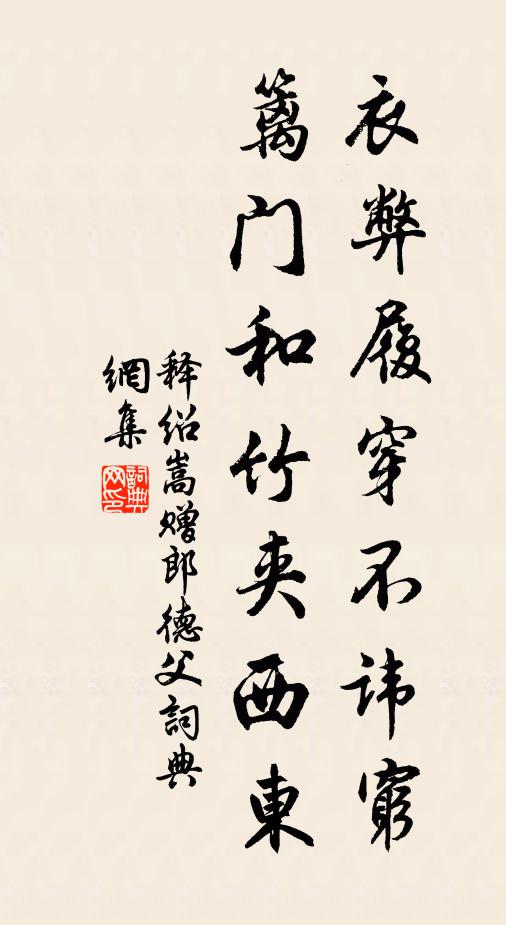 衣弊履穿不讳窮
篱门和竹夹西東
释绍嵩赠郎德父詞典
網集
詞典網印